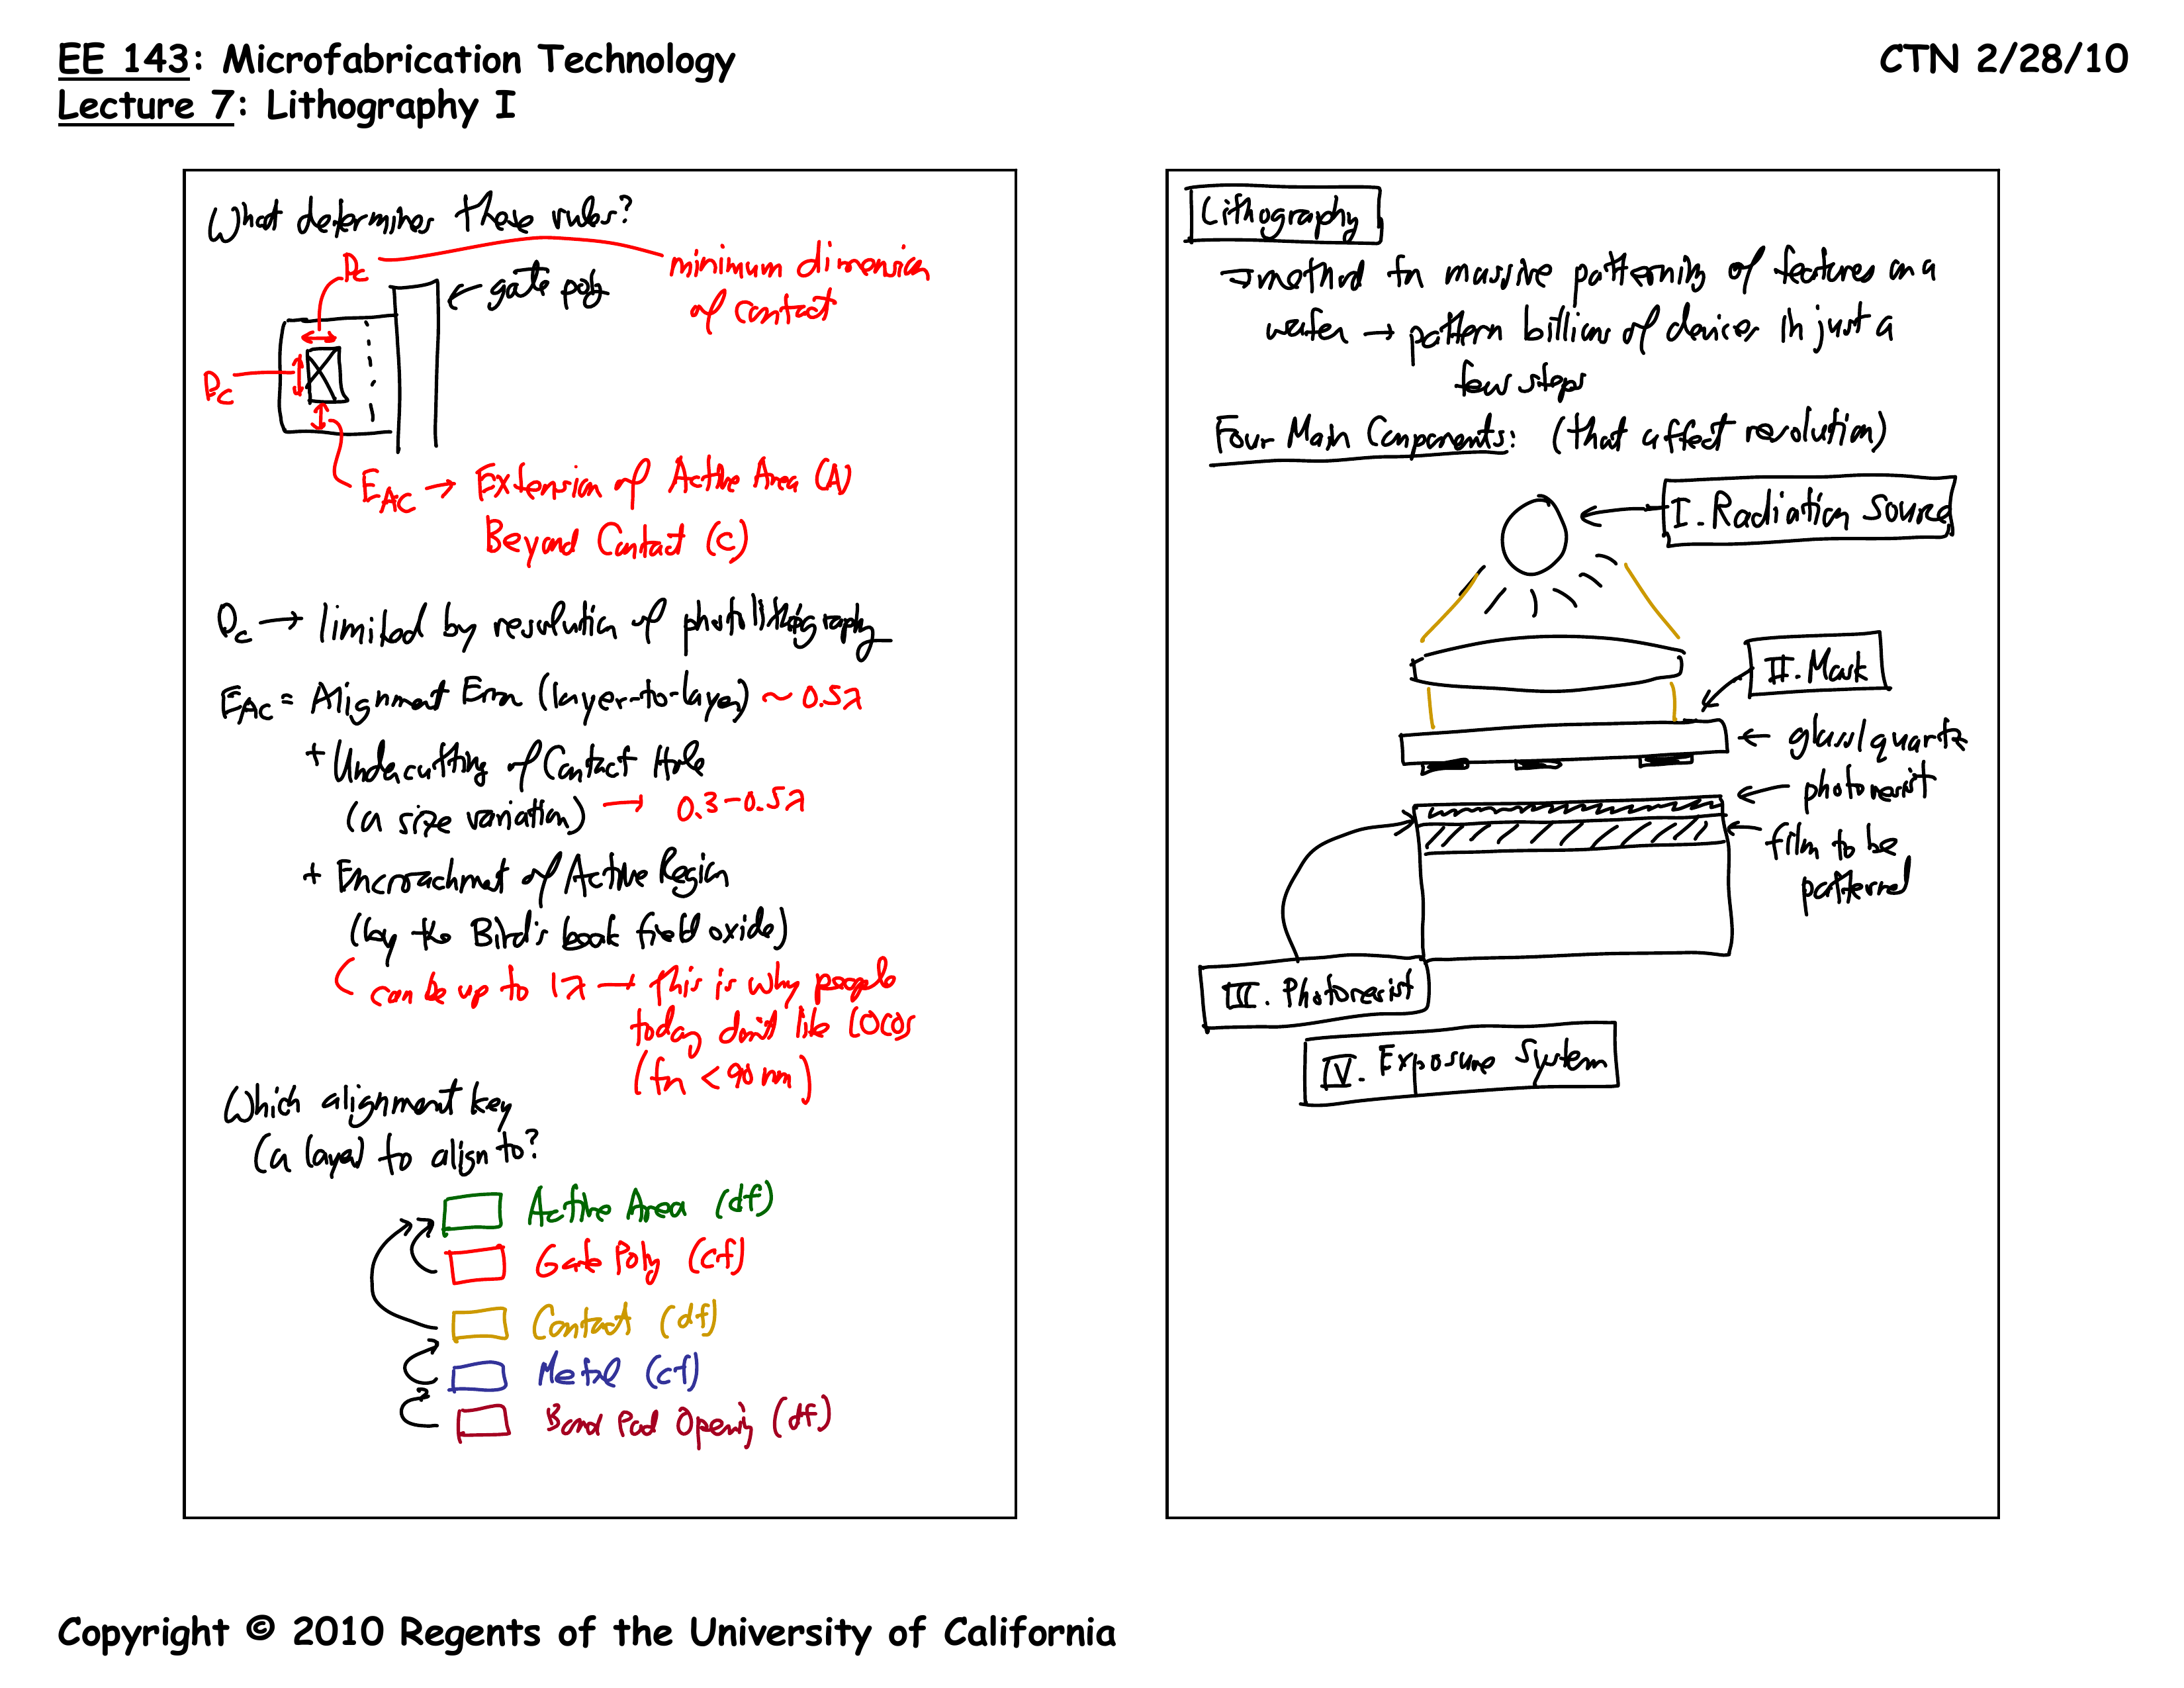 EE 143: Microfabrication Technology
CTN 2/28/10
Lecture 7: Lithography I
What determines these rules?
Dc
minimum dimension
of contact
gate poly
Dc
EAC → Extension of Active Area (A)
Beyond Contact (C)
Dc → limited by resolution of photolithography
EAC = Alignment Error (layer-to-layer) ~ 0.5λ
+ Undercutting of Contact Hole
(a size variation) → 0.3-0.5λ
+ Encroachment of Active Region
(by the Bird's beak field oxide)
can be up to 1λ → this is why people
today don't like LOCOS
(for <90nm)
Which alignment key
(a layer) to align to?
Active Area (df)
Gate Poly (cf)
Contact (df)
Metal (cf)
Bond Pad Opening (df)
Lithography
→ method for massive patterning of features on a
wafer → pattern billions of devices in just a
few steps
Four Main Components: (that affect resolution)
I. Radiation Source
II. Mask
← glass/quartz
← photoresist
← film to be
patterned
III. Photoresist
IV. Exposure System
Copyright © 2010 Regents of the University of California